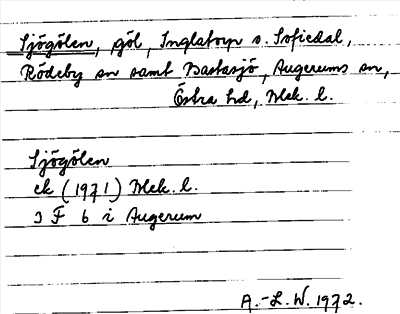 Sjögölen, göl, Inglatorp o. Sofiedal,
Rödeby sn samt Bastasjö, Augerums sn,
Östra hd, Blek. l.
Sjögölen
ek (1971) Blek. l.
3 F 6 i Augerum
A.-L. W. 1972.